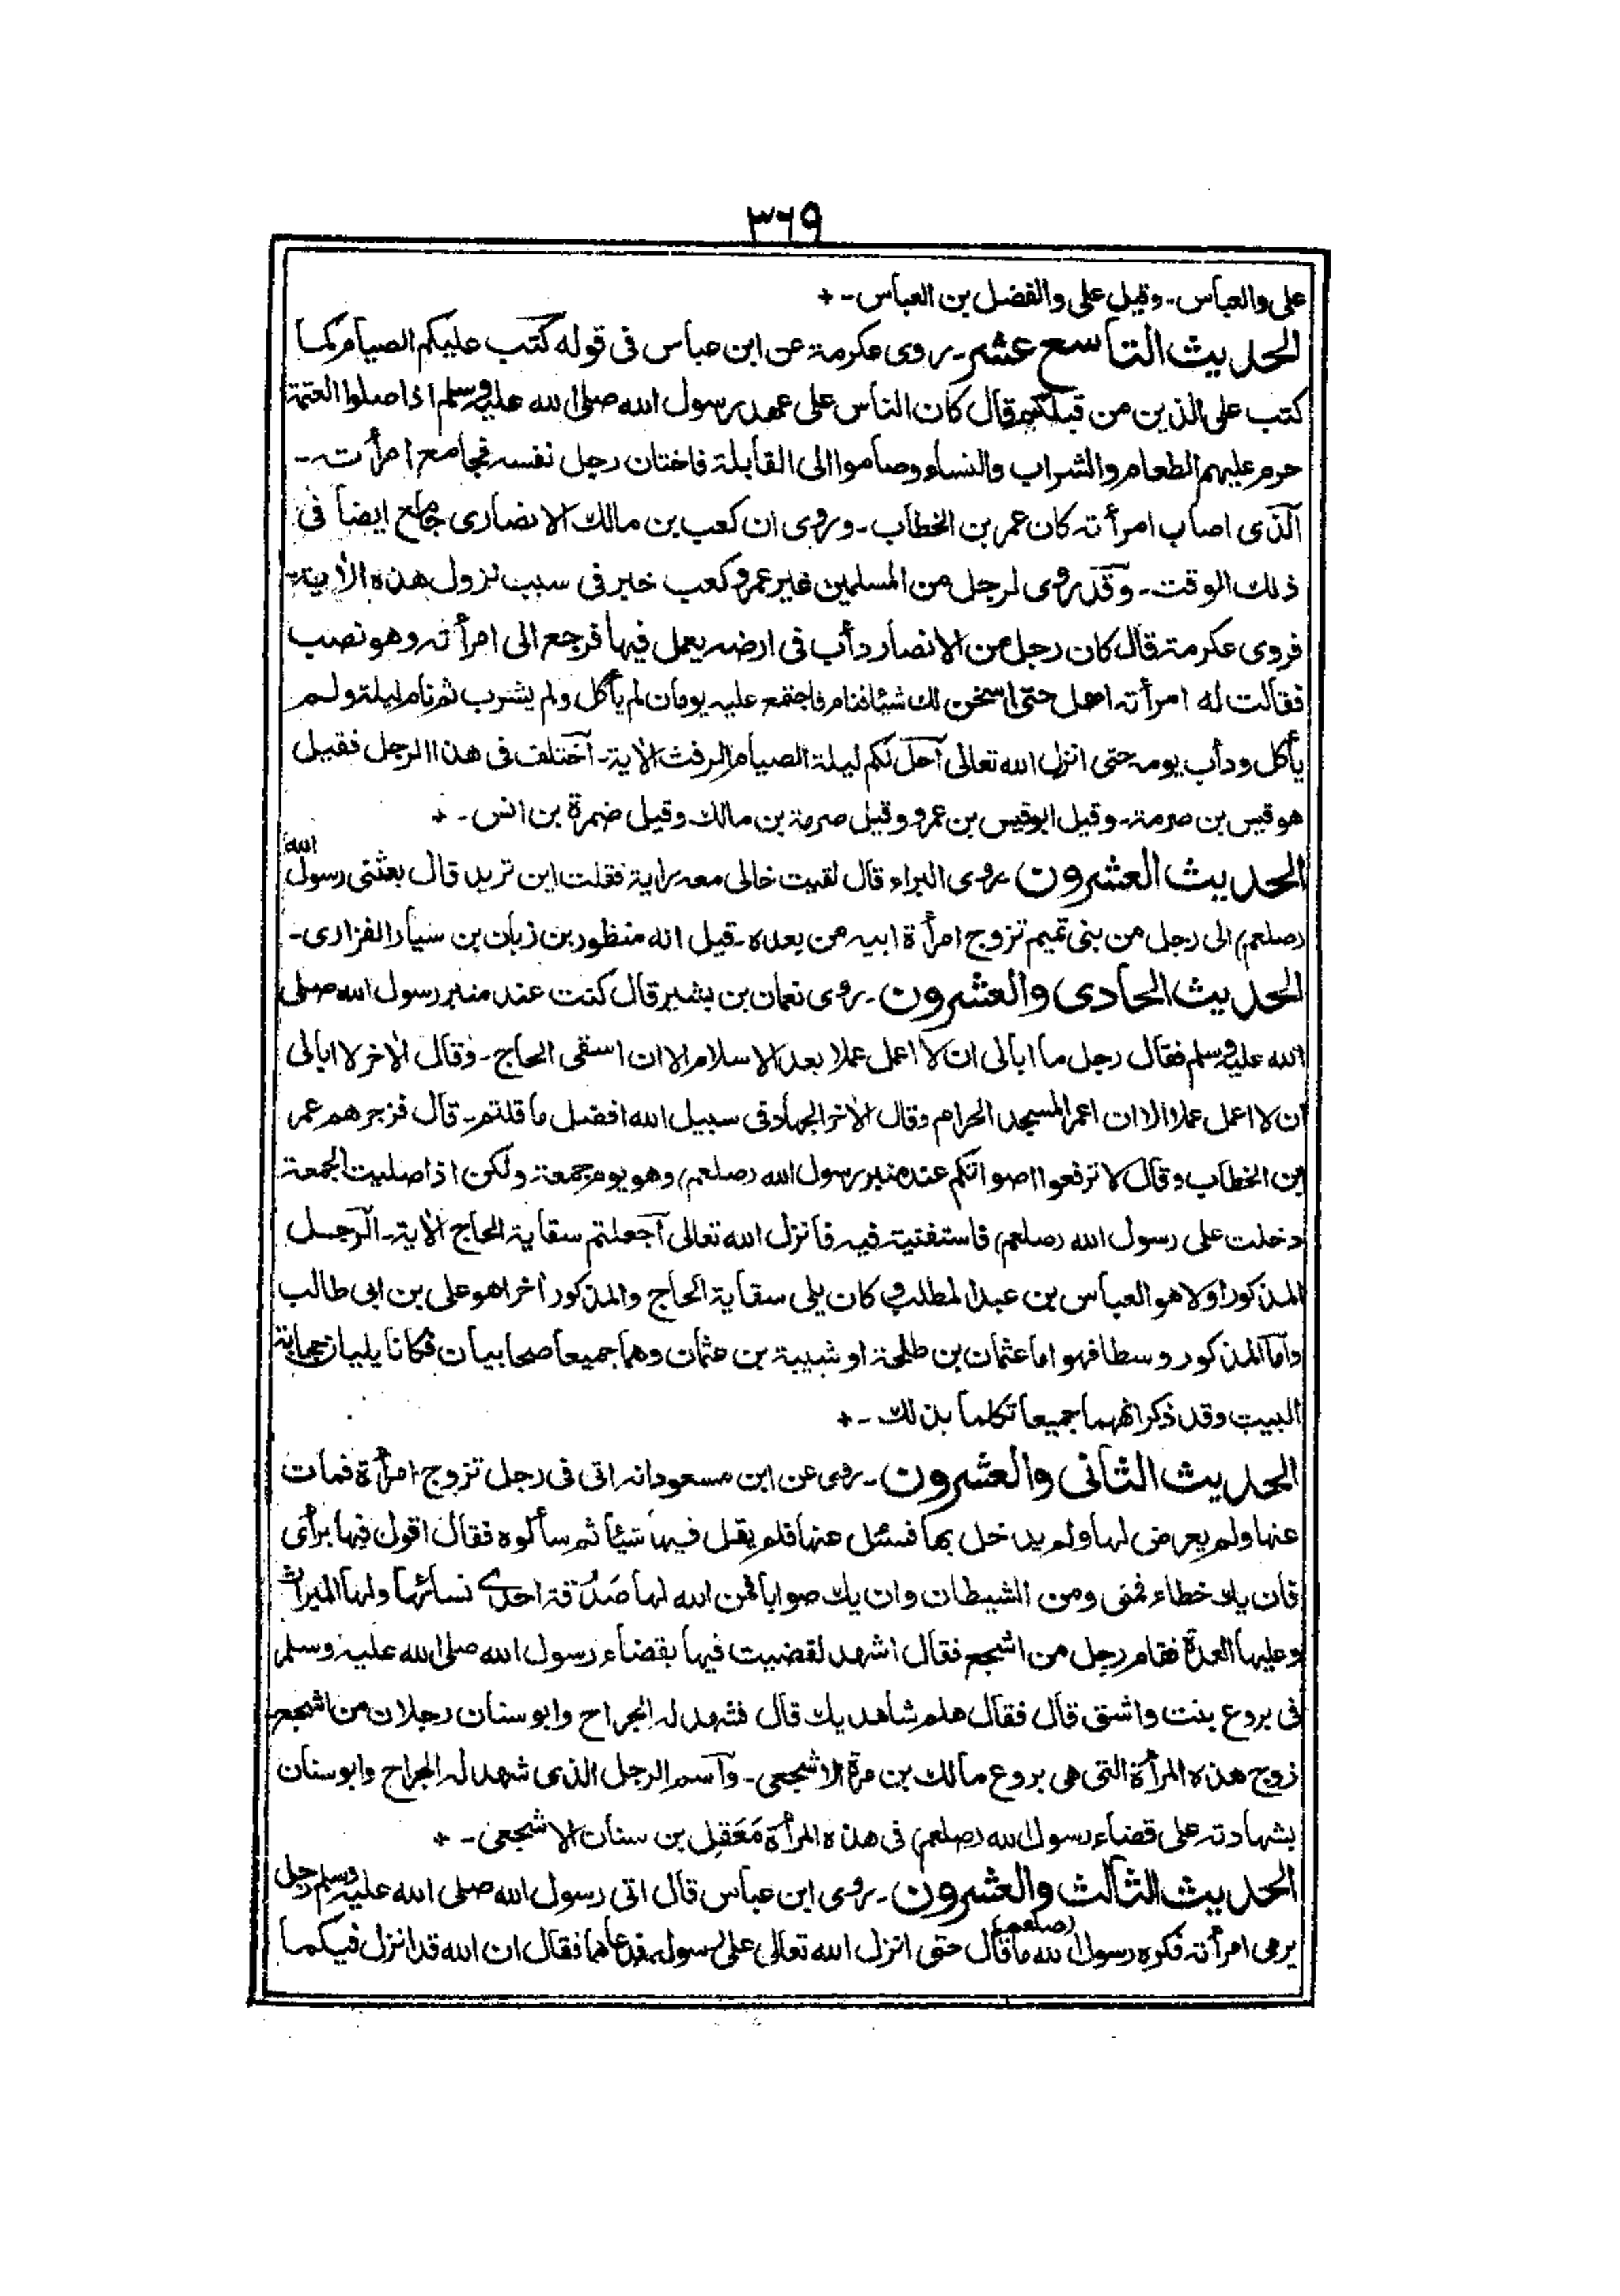 ۳۶۹
علی والعباس۔ وقیل علی والفضل بن العباس۔ +
الحدیث التاسع عشر۔ روی عکرمۃ عن ابن عباس فی قولہ کتب علیکم الصیام کما
کتب علی الذین من قبلکم قال کان الناس علی عھد رسول اللہ صلی اللہ علیہ وسلم اذا صلوا العتمۃ
حرم علیہم الطعام والشراب والنساء وصاموا الی القابلۃ فاختان رجل نفسہ فجامع امرأتہ۔
الذی اصاب امرأتہ کان عمر بن الخطاب۔ وروی ان کعب بن مالک الانصاری جامع ایضاً فی
ذلک الوقت۔ وقد روی لرجل من المسلمین غیر عمر وکعب خبر فی سبب نزول ھذہ الاٰیۃ۔
فروی عکرمۃ قال کان رجل من الانصار دأب فی ارضہ یعمل فیہا فرجع الی امرأتہ وھو نصب
فقالت لہ امرأتہ امھل حتی اسخن لک شیئا فنام فاجتمع علیہ یومان لم یأکل ولم یشرب ثم نام لیلۃ ولم
یأکل ودأب یومہ حتی انزل اللہ تعالی اُحل لکم لیلۃ الصیام الرفث الاٰیۃ۔ اختلف فی ھذا الرجل فقیل
ھو قیس بن صرمۃ۔ وقیل ابو قیس بن عمرو وقیل صرمۃ بن مالک وقیل ضمرۃ بن انس۔ +
الحدیث العشرون روی البراء قال لقیت خالی معہ رایۃ فقلت این ترید قال بعثنی رسول اللہ
(صلعم) الی رجل من بنی تمیم تزوج امرأۃ ابیہ من بعدہ۔ قیل انہ منظور بن زبان بن سیار الفزاری۔
الحدیث الحادی والعشرون۔ روی نعمان بن بشیر قال کنت عند منبر رسول اللہ صلی
اللہ علیہ وسلم فقال رجل ما ابالی ان لا اعمل عملا بعد الاسلام الا ان اسقی الحاج۔ وقال الاٰخر لا ابالی
ان لا اعمل عملا الا ان اعمر المسجد الحرام وقال الاٰخر الجہاد فی سبیل اللہ افضل ما قلتم۔ قال فزجرھم عمر
ابن الخطاب وقال لا ترفعوا اصواتکم عند منبر رسول اللہ (صلعم) وھو یوم جمعۃ ولکن اذا صلیت الجمعۃ
دخلت علی رسول اللہ (صلعم) فاستفتیتہ فیہ فانزل اللہ تعالی اَجعلتم سقایۃ الحاج الاٰیۃ۔ الرجل
المذکور اولا ھو العباس بن عبد المطلب وکان یلی سقایۃ الحاج والمذکور اٰخرا ھو علی بن ابی طالب
واما المذکور وسطا فہو اما عثمان بن طلحۃ او شیبۃ بن عثمان وھما جمیعا صحابیان فکانا یلیان حجابۃ
البیت وقد ذکر انھما جمیعا تکلما بذلک۔ +
الحدیث الثانی والعشرون۔ روی عن ابن مسعود انہ اتی فی رجل تزوج امرأۃ فمات
عنہا ولم یعرض لہا ولم یدخل بھا فسئل عنہا فلم یقل فیہا شیئا ثم سألوہ فقال اقول فیہا برأی
فان یک خطاء فمنی ومن الشیطان وان یک صوابا فمن اللہ لہا صَدُقۃ احدی نسائہا ولہا المیراث
وعلیہا العدۃ فقام رجل من اشجع فقال اشھد لقضیت فیہا بقضاء رسول اللہ صلی اللہ علیہ وسلم
فی بروع بنت واشق قال فقال ھلم شاھدیک قال فشہد لہ الجراح وابو سنان رجلان من اشجع
زوج ھذہ المرأۃ التی ھی بروع مالک بن مرۃ الاشجعی۔ واسم الرجل الذی شھد لہ الجراح وابو سنان
بشھادتہ علی قضاء رسول اللہ (صلعم) فی ھذہ المرأۃ مَعقِل بن سنان الاشجعی۔ +
الحدیث الثالث والعشرون۔ روی ابن عباس قال اتی رسول اللہ صلی اللہ علیہ وسلم رجل
یرمی امرأتہ فکرہ رسول اللہ (صلعم) ما قال حتی انزل اللہ تعالی علی رسولہ فدعاھما فقال ان اللہ قد انزل فیکما